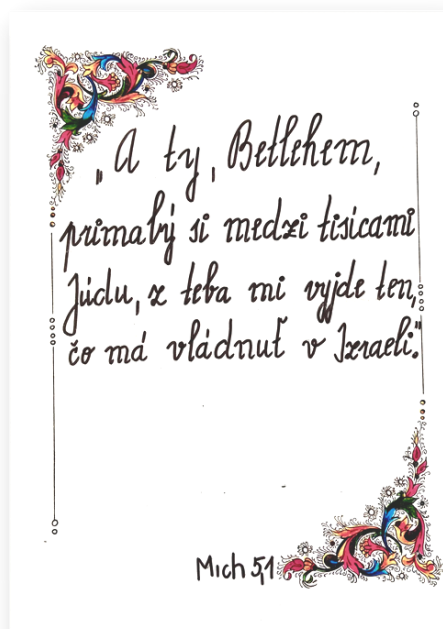 „A ty, Betlehem,
primalý si medzi tisícami
Júdu, z teba mi vyjde ten,
čo má vládnuť v Izraeli."
Mich 5,1